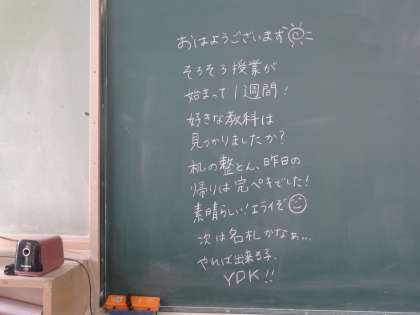 おはようございます
そろそろ授業が
始まって1週間!
好きな教科は
見つかりましたか?
机の整とん、昨日の
帰りは完ペキでした!
素晴らしい!エライぞ
次は名札かなぁ...
やれば出来る子、
YDK!!